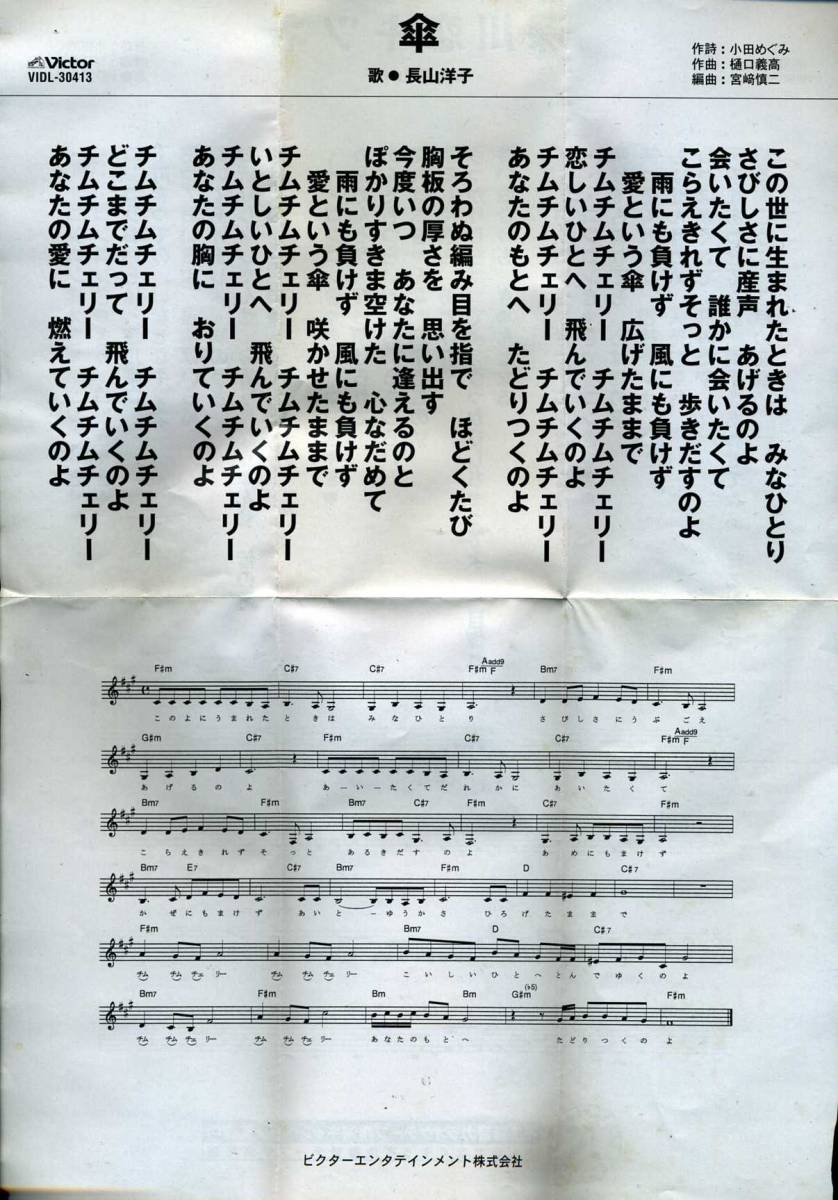 傘
Victor
VIDL-30413
歌●長山洋子
作詩：小田めぐみ
作曲：樋口義高
編曲：宮﨑慎二
この世に生まれたときは　みなひとり
さびしさに産声　あげるのよ
会いたくて　誰かに会いたくて
こらえきれずそっと　歩きだすのよ
雨にも負けず　風にも負けず
愛という傘　広げたままで
チムチムチェリー　チムチムチェリー
恋しいひとへ　飛んでいくのよ
チムチムチェリー　チムチムチェリー
あなたのもとへ　たどりつくのよ
そろわぬ編み目を指で　ほどくたび
胸板の厚さを　思い出す
今度いつ　あなたに逢えるのと
ぽかりすきま空けた　心なだめて
雨にも負けず　風にも負けず
愛という傘　咲かせたままで
チムチムチェリー　チムチムチェリー
いとしいひとへ　飛んでいくのよ
チムチムチェリー　チムチムチェリー
あなたの胸に　おりていくのよ
チムチムチェリー　チムチムチェリー
どこまでだって　飛んでいくのよ
チムチムチェリー　チムチムチェリー
あなたの愛に　燃えていくのよ
F#m C#7 C#7 F#m Aadd9/F Bm7 F#m
このよにうまれたときは みなひとり さびしさにうぶごえ
G#m C#7 F#m C#7 C#7 F#m Aadd9/F
あげるのよ あーいーたくてだれかに あいたくて
Bm7 F#m Bm7 C#7 F#m C#7 F#m
こらえきれずそっと あるきだすのよ あめにもまけず
Bm7 E7 C#7 Bm7 F#m D C#7
かぜにもまけず あいと－ゆうかさ ひろげたままで
F#m Bm7 D C#7
チム チム チェリー チム チム チェリー こいしいひとへとんでゆくのよ
Bm7 F#m Bm Bm G#m(♭5) F#m
チム チム チェリー チム チム チェリー あなたのもとへ たどりつくのよ
ビクターエンタテインメント株式会社